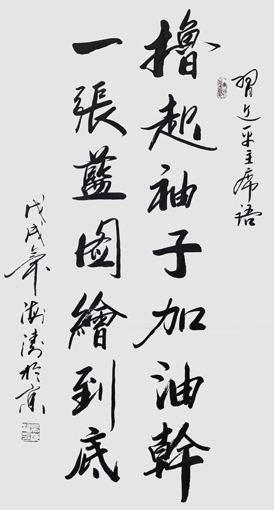 習近平主席語
擼起袖子加油幹
一張藍圖繪到底
戊戌年海濤於京